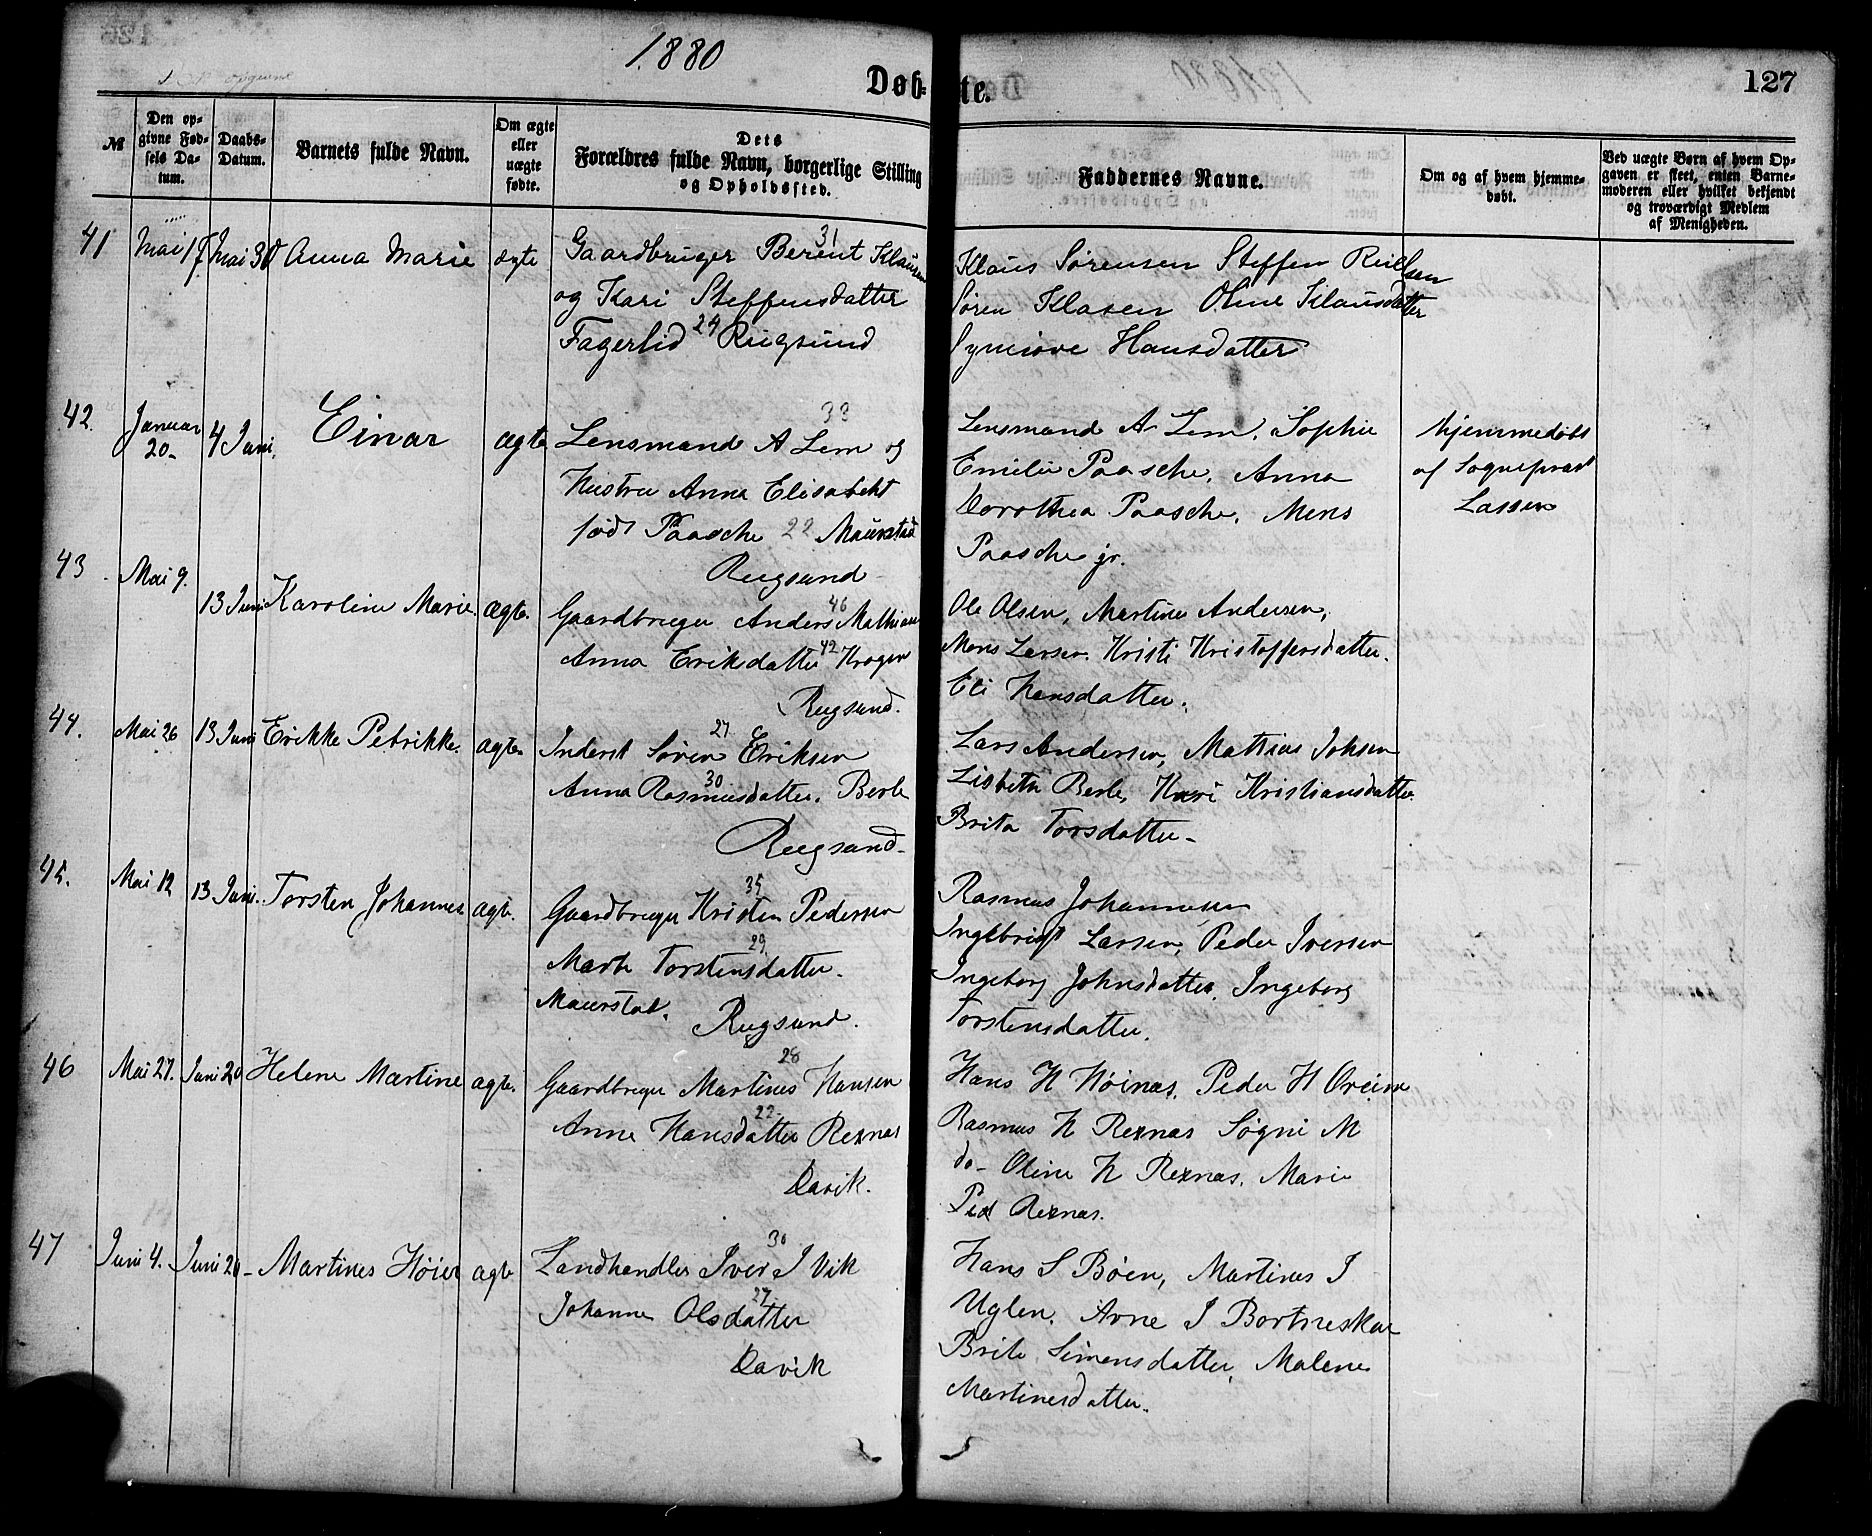 1880
Døb-te.
127
№
Den opgivne Fødsels Datum.
Daabs-Datum.
Barnets fulde Navn.
Om ægte eller uægte fødte.
Dets Forældres fulde Navn, borgerlige Stilling og Opholdssted.
Faddernes Navne.
Om og af hvem hjemmedøbt.
Ved uægte Børn af hvem Opgaven er skeet, enten Barnemoderen eller hvilket bekjendt og troværdigt Medlem af Menigheden.
41 Mai 17 Mai 30 Anna Marie ægte
Gaardbruger Berent Klausen 31
og Kari Steffensdatter
Fagerlid 24 Rugsund
Klaus Sørensen Steffen
Søren Klasen Oline Klausdatter
Hansdatter
42. Januar 20. 4 Juni. Einar ægte
Lensmand A Lem og 33
Hustru Anna Elisabeht
født Paasche 22 Maurstad
Rugsund
Lensmand A Lem. Sophie
Emilie Paasche, Anna
Dorothea Paasche, Mons
Paasche jr.
Hjemmedøbt
af Sogneprest
Lassen
43 Mai 9. 13 Juni Karoline Marie ægte.
Gaardbruger Anders 46 Mathiasen
Anna Eriksdatter 42 Krogen
Rugsund.
Ole Olsen, Martines Andersen,
Mons Larsen. Kristi Kristoffersdatter.
Eli Hansdatter.
44. Mai 26 13 Juni Erikke Petrikke. ægte
Inderst Søren 27 Eriksen
Anna Rasmusdatter. 30 Berle
Rugsund.
Lars Andersen, Mathias Johsen
Lisbeth Berle, Kari Kristiansdatter
Brita Torsdatter.
45. Mai 12 13 Juni. Torsten Johannes ægte.
Gaardbruger Kristen 35 Pedersen
Marte Torstensdatter. 29
Maurstad. Rugsund.
Rasmus Johannesen
Ingebrigt Larsen, Peder Iversen
Ingeborg Johnsdatter, Ingeborg
Torstensdatter.
46 Mai 27. Juni 20 Helene Martine ægte.
Gaardbruger Martines Hansen 28
Anne Hansdatter 22 Rexnæs
Davik.
Hans H Høinæs, Peder H Oreim
Rasmus H Rexnæs Søgni M
do- Oline H Rexnæs, Marie
Ped Rexnæs.
47 Juni 4. Juni 20- Martines Höier ægte
Landhandler Iver I Vik 30
Johanne Olsdatter 27
Davik
Hans S Bøen, Martines I
Uglen. Arne I Bortneskar
Brite Simensdatter, Malene
Martinesdatter.